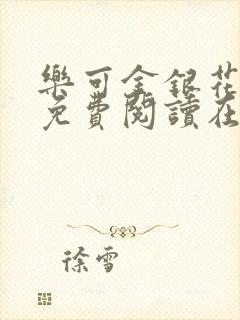 樂可金銀花
免費閱讀在
徐雪